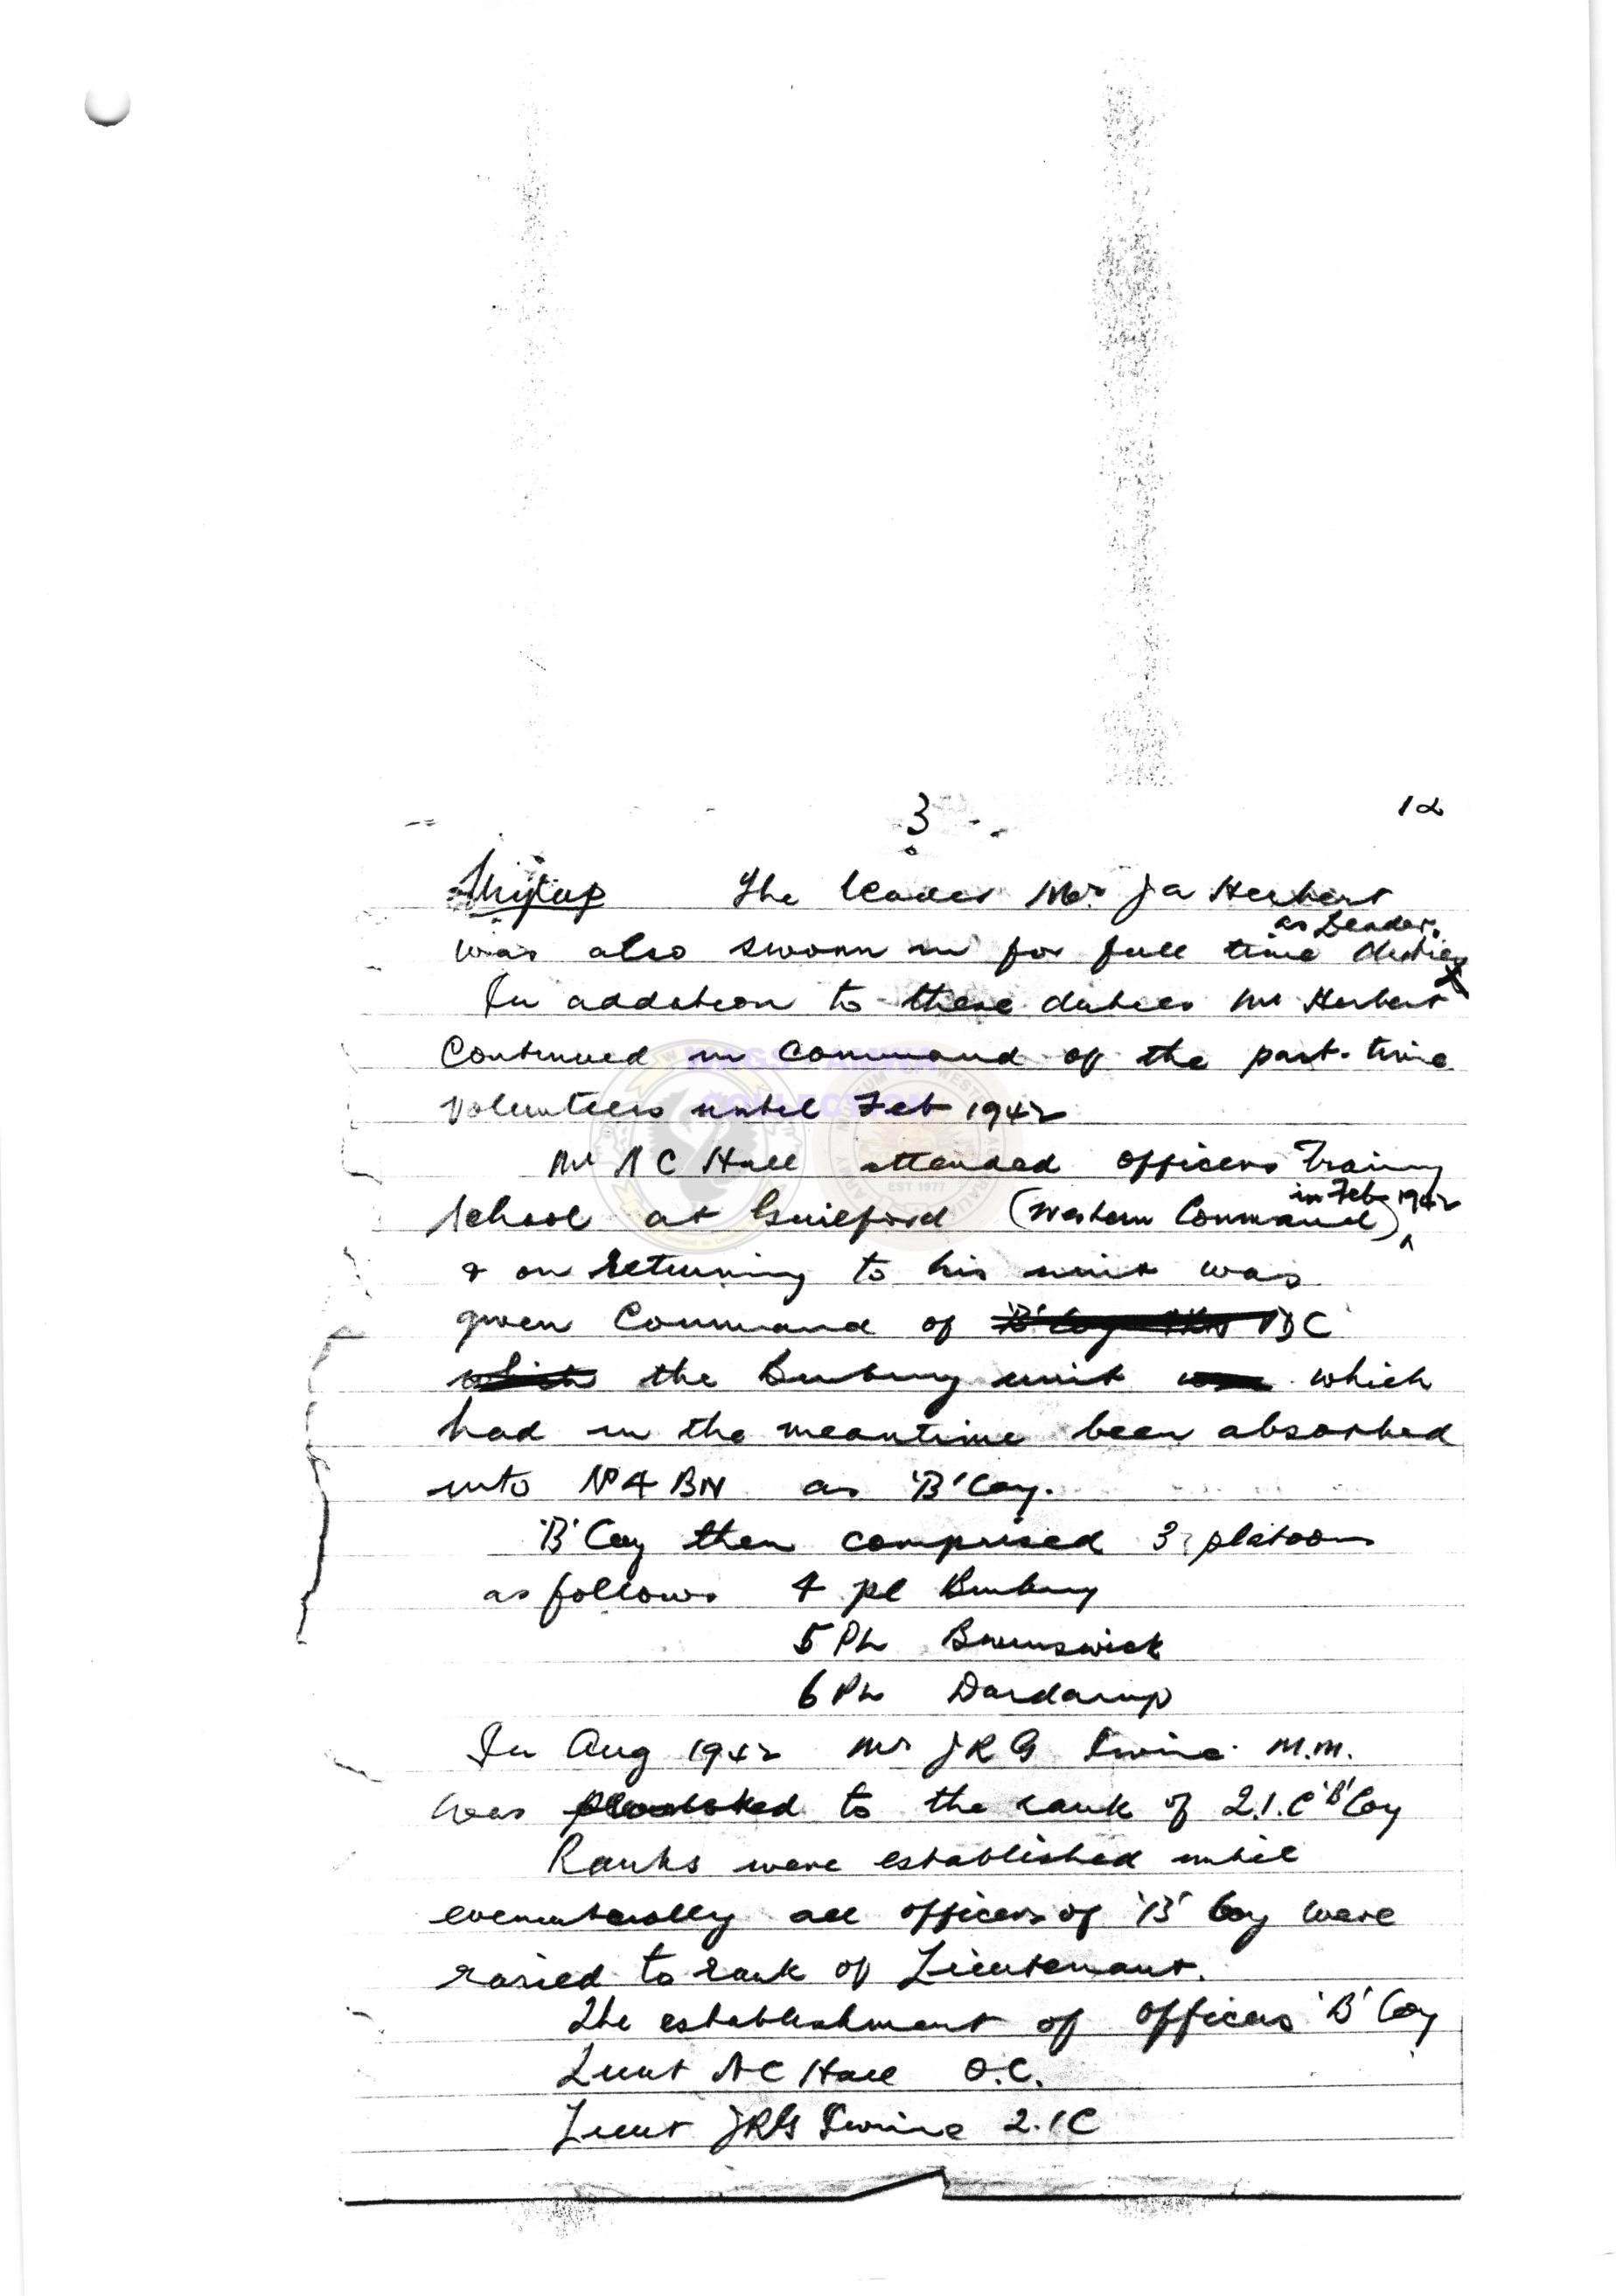 3 12
The leader Mr J A Herbert
as Leader.
was also sworn in for full time duties
In addition to these duties Mr Herbert
Continued in Command of the part-time
WAGS - AMWA
COLLECTION
Volunteers until Feb 1942
Mr N C Hall attended Officers Training
in Feb 1942
School at Guilford (Western Command)
& on returning to his unit was
given Command of 'B' Coy VDC
which the Bunbury unit was which
had in the meantime been absorbed
into No 4 BN as 'B' Coy.
'B' Coy then comprised 3 platoons
as follows 4 pl Bunbury
5 PL Brunswick
6 PL Dardanup
In Aug 1942 Mr J R G Twine M.M.
was to the rank of 2.I.C 'B' Coy
Ranks were established until
all officers of 'B' Coy were
rasied to rank of Lieutenant.
The establishment of Officers 'B' Coy
Lieut N C Hall O.C.
Lieut JRG Twine 2.IC
EST 1977